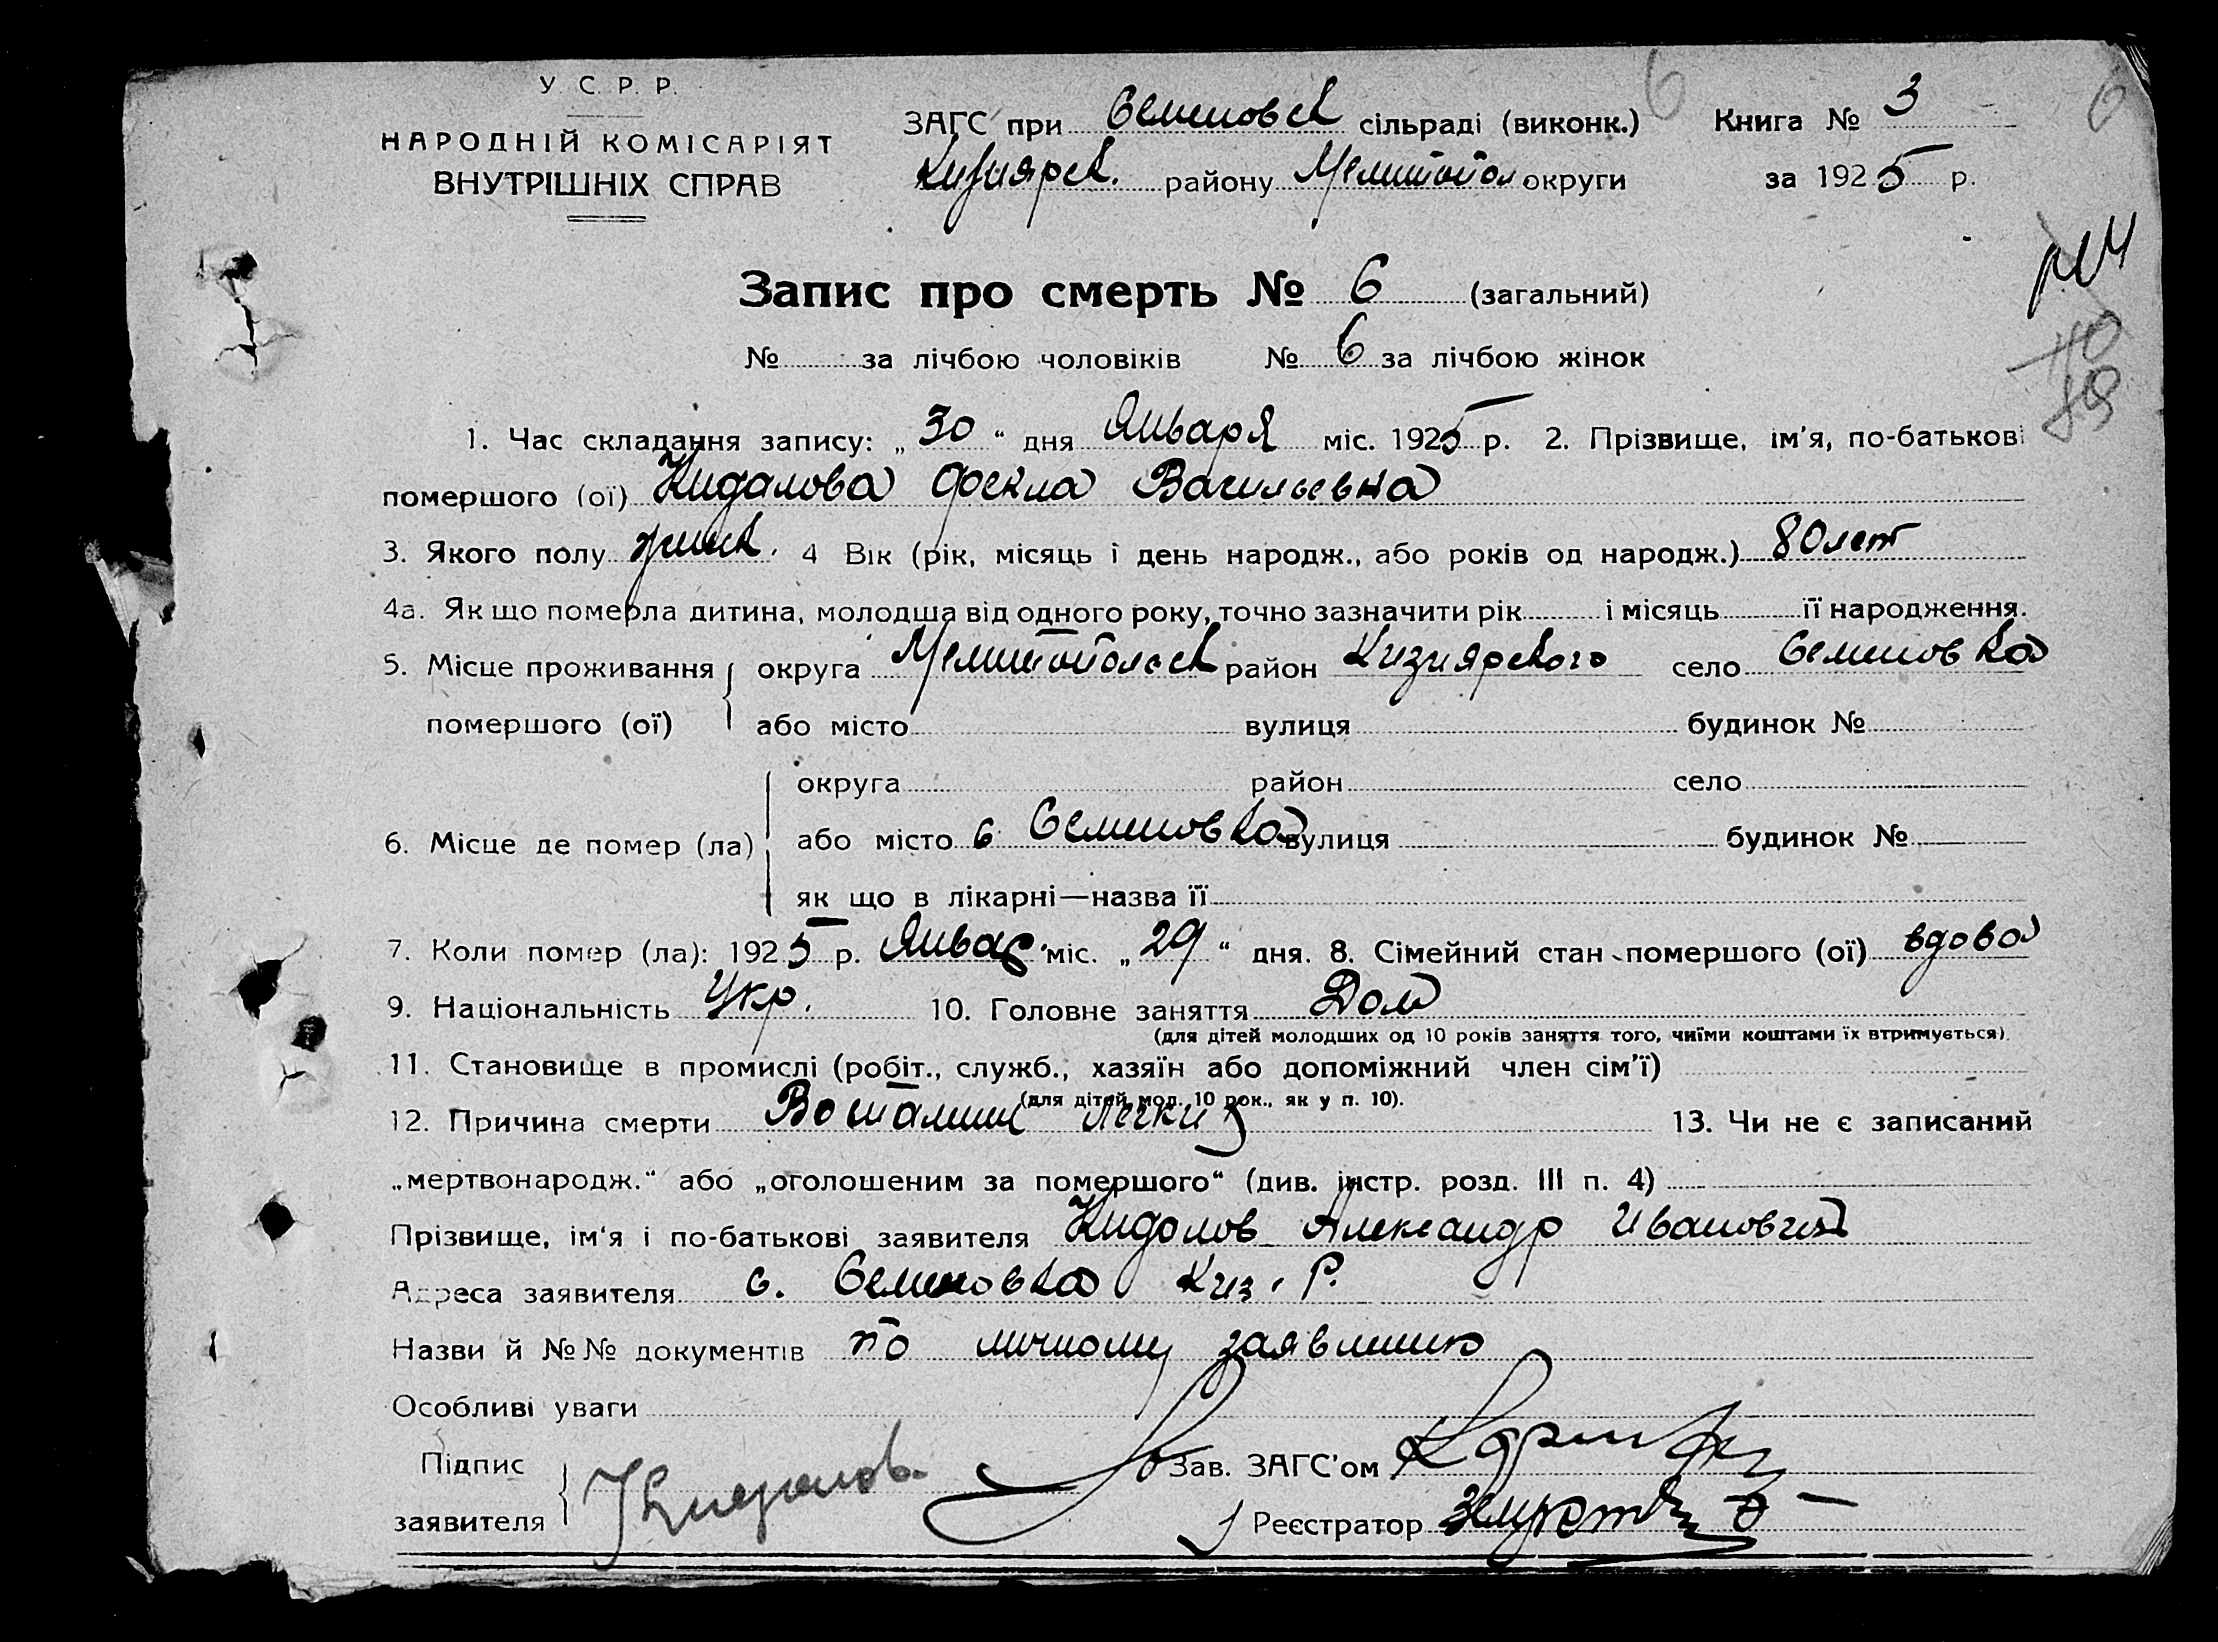 У. С. Р. Р.
НАРОДНІЙ КОМІСАРІЯТ
ВНУТРІШНІХ СПРАВ
ЗАГС при Семеновск сільраді (виконк.) 6 Книга № 3 6
Кизиярск. району Мелитопол округи за 1925 р.
Запис про смерть № 6 (загальний)
№ за лічбою чоловіків № 6 за лічбою жінок
1. Час складання запису: „30“ дня Января міс. 1925 р. 2. Прізвище, ім’я, по-батькові
помершого (ої) Кидалова Фекла Васильевна
3. Якого полу женск. 4 Вік (рік, місяць і день народж., або років од народж.) 80 лет
4а. Як що померла дитина, молодша від одного року, точно зазначити рік і місяць її народження.
5. Місце проживання округа Мелитопольск район Кизиярского село Семеновка
помершого (ої) або місто вулиця будинок №
округа район село
6. Місце де помер (ла) або місто с Семеновка вулиця будинок №
як що в лікарні—назва її
7. Коли помер (ла): 1925 р. Январ. міс. „29“ дня. 8. Сімейний стан помершого (ої) вдова
9. Національність Укр. 10. Головне заняття Дом
(для дітей молодших од 10 років заняття того, чиїми коштами їх втримується).
11. Становище в промислі (робіт., служб., хазяїн або допоміжний член сім’ї)
(для дітей мол. 10 рок., як у п. 10).
12. Причина смерти легких 13. Чи не є записаний
„мертвонародж.“ або „оголошеним за помершого“ (див. інстр. розд. III п. 4)
Прізвище, ім‘я і по-батькові заявителя Кидалов Александр Иванович
Адреса заявителя с. Семеновка Киз. Р.
Назви й №№ документів по личному заявлению
Особливі уваги
Підпис
заявителя Кидалов
Зав. ЗАГС’ом
Реєстратор